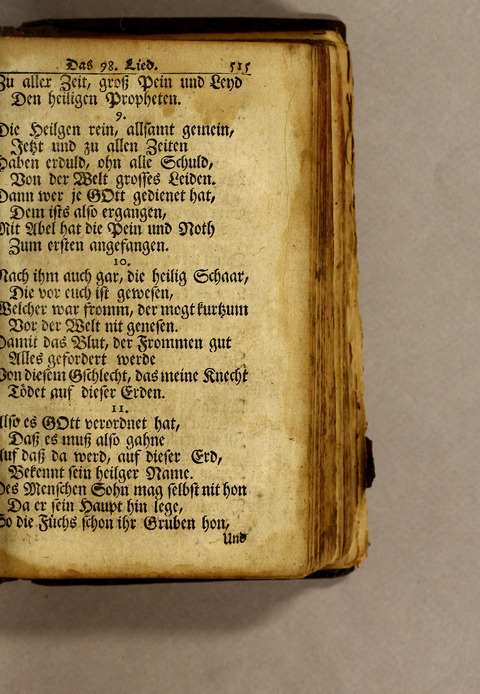 Das 98. Lied. 515
Zu aller Zeit, groß Pein und Leyd
Den heiligen Propheten.
9.
Die Heilgen rein, allsamt gemein,
Jetzt und zu allen Zeiten
Haben erduld, ohn alle Schuld,
Von der Welt grosses Leiden.
Dann wer je GOtt gedienet hat,
Dem ists also ergangen,
Mit Abel hat die Pein und Noth
Zum ersten angefangen.
10.
Nach ihm auch gar, die heilig Schaar,
Die vor euch ist gewesen,
Welcher war fromm, der mogt kurtzum
Vor der Welt nit genesen.
Damit das Blut, der Frommen gut
Alles gefordert werde
Von diesem Gschlecht, das meine Knecht
Tödet auf dieser Erden.
11.
Also es GOtt verordnet hat,
Daß es muß also gahne
Auf daß da werd, auf dieser Erd,
Bekennt sein heilger Name.
Des Menschen Sohn mag selbst nit hon
Da er sein Haupt hin lege,
So die Füchs schon ihr Gruben hon,
Und